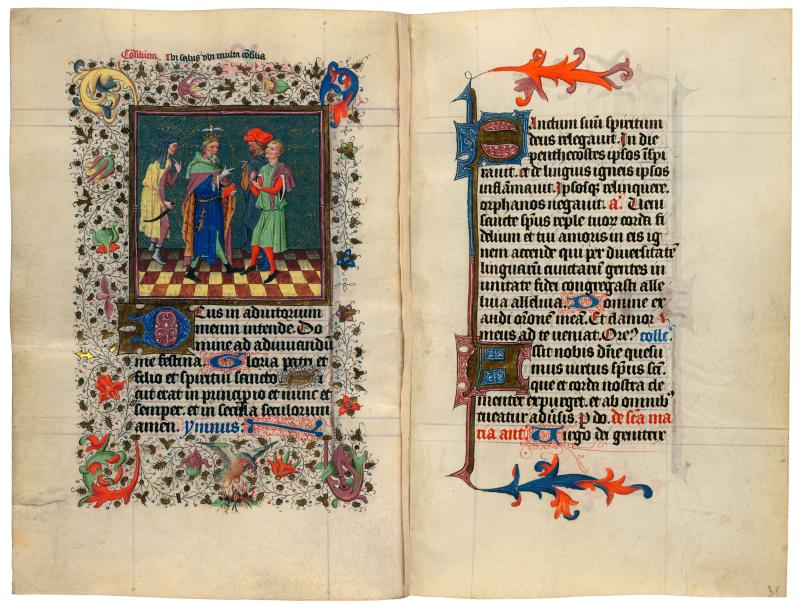 Cõsiliũm. Ibi salus vbi multa cõsilia
Deus in adiutorium
meum intende. Do
mine ad adiuuandũ
me festina. Gloria patri et
filio et spiritui sancto Si
cut erat in principio et nunc et
semper. et in secula seculorum
amen. Ymnus.
Sanctum suũ spiritum
deus relegauit. In die
penthecostes ipsos ĩspi
rauit. et de linguis igneis ipsos
inflãmauit. Ipsosq relinquere
orphanos negauit. a. Ueni
sancte sp̃us reple tuoꝝ corda fi
delium et tui amoris in eis ig
nem accende qui per diuersitatẽ
linguarũ cunctarũ gentes in
unitate fidei congregasti alle
luia alleluia. Domine ex
audi orõnem meã. Et clamor
meus ad te ueniat. Ore᷒ colle.
Assit nobis dñe quesu
mus uirtus sp̃us sct̃.
que et corda nostra cle
menter expurget. et ab omnib᷒
tueatur aduẽsis. P do. de sẽa ma
ria ant. Uirgo dei genitrix